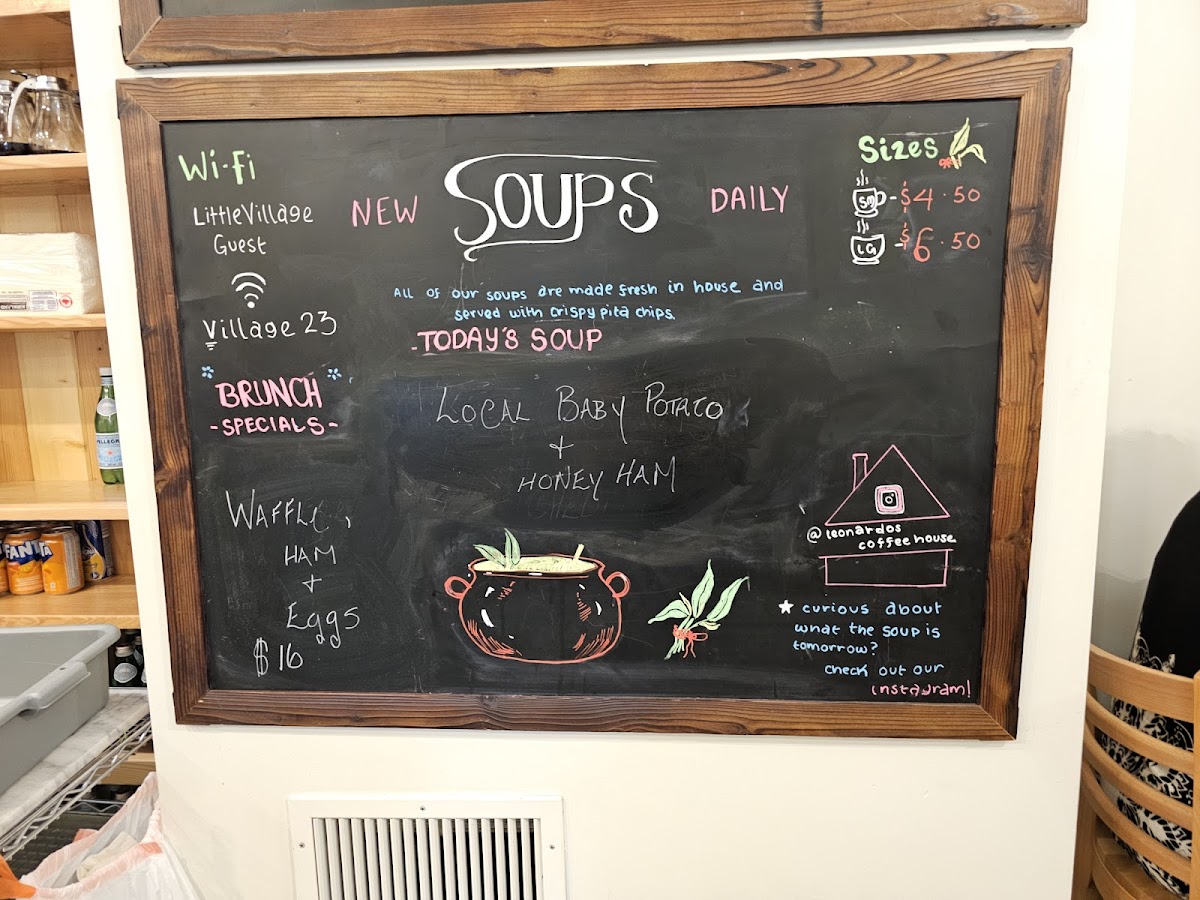 Wi-Fi
LittleVillage
Guest
Village 23
BRUNCH
-SPECIALS-
WAFFLE,
HAM
+
Eggs
$16
NEW SOUPS DAILY
All of our soups are made fresh in house and
served with crispy pita chips.
-TODAY'S SOUP
LOCAL BABY POTATO
+
HONEY HAM
Sizes
SM - $4.50
LG - $6.50
@leonardos
coffeehouse
★ curious about
what the soup is
tomorrow?
check out our
instagram!
FANTA